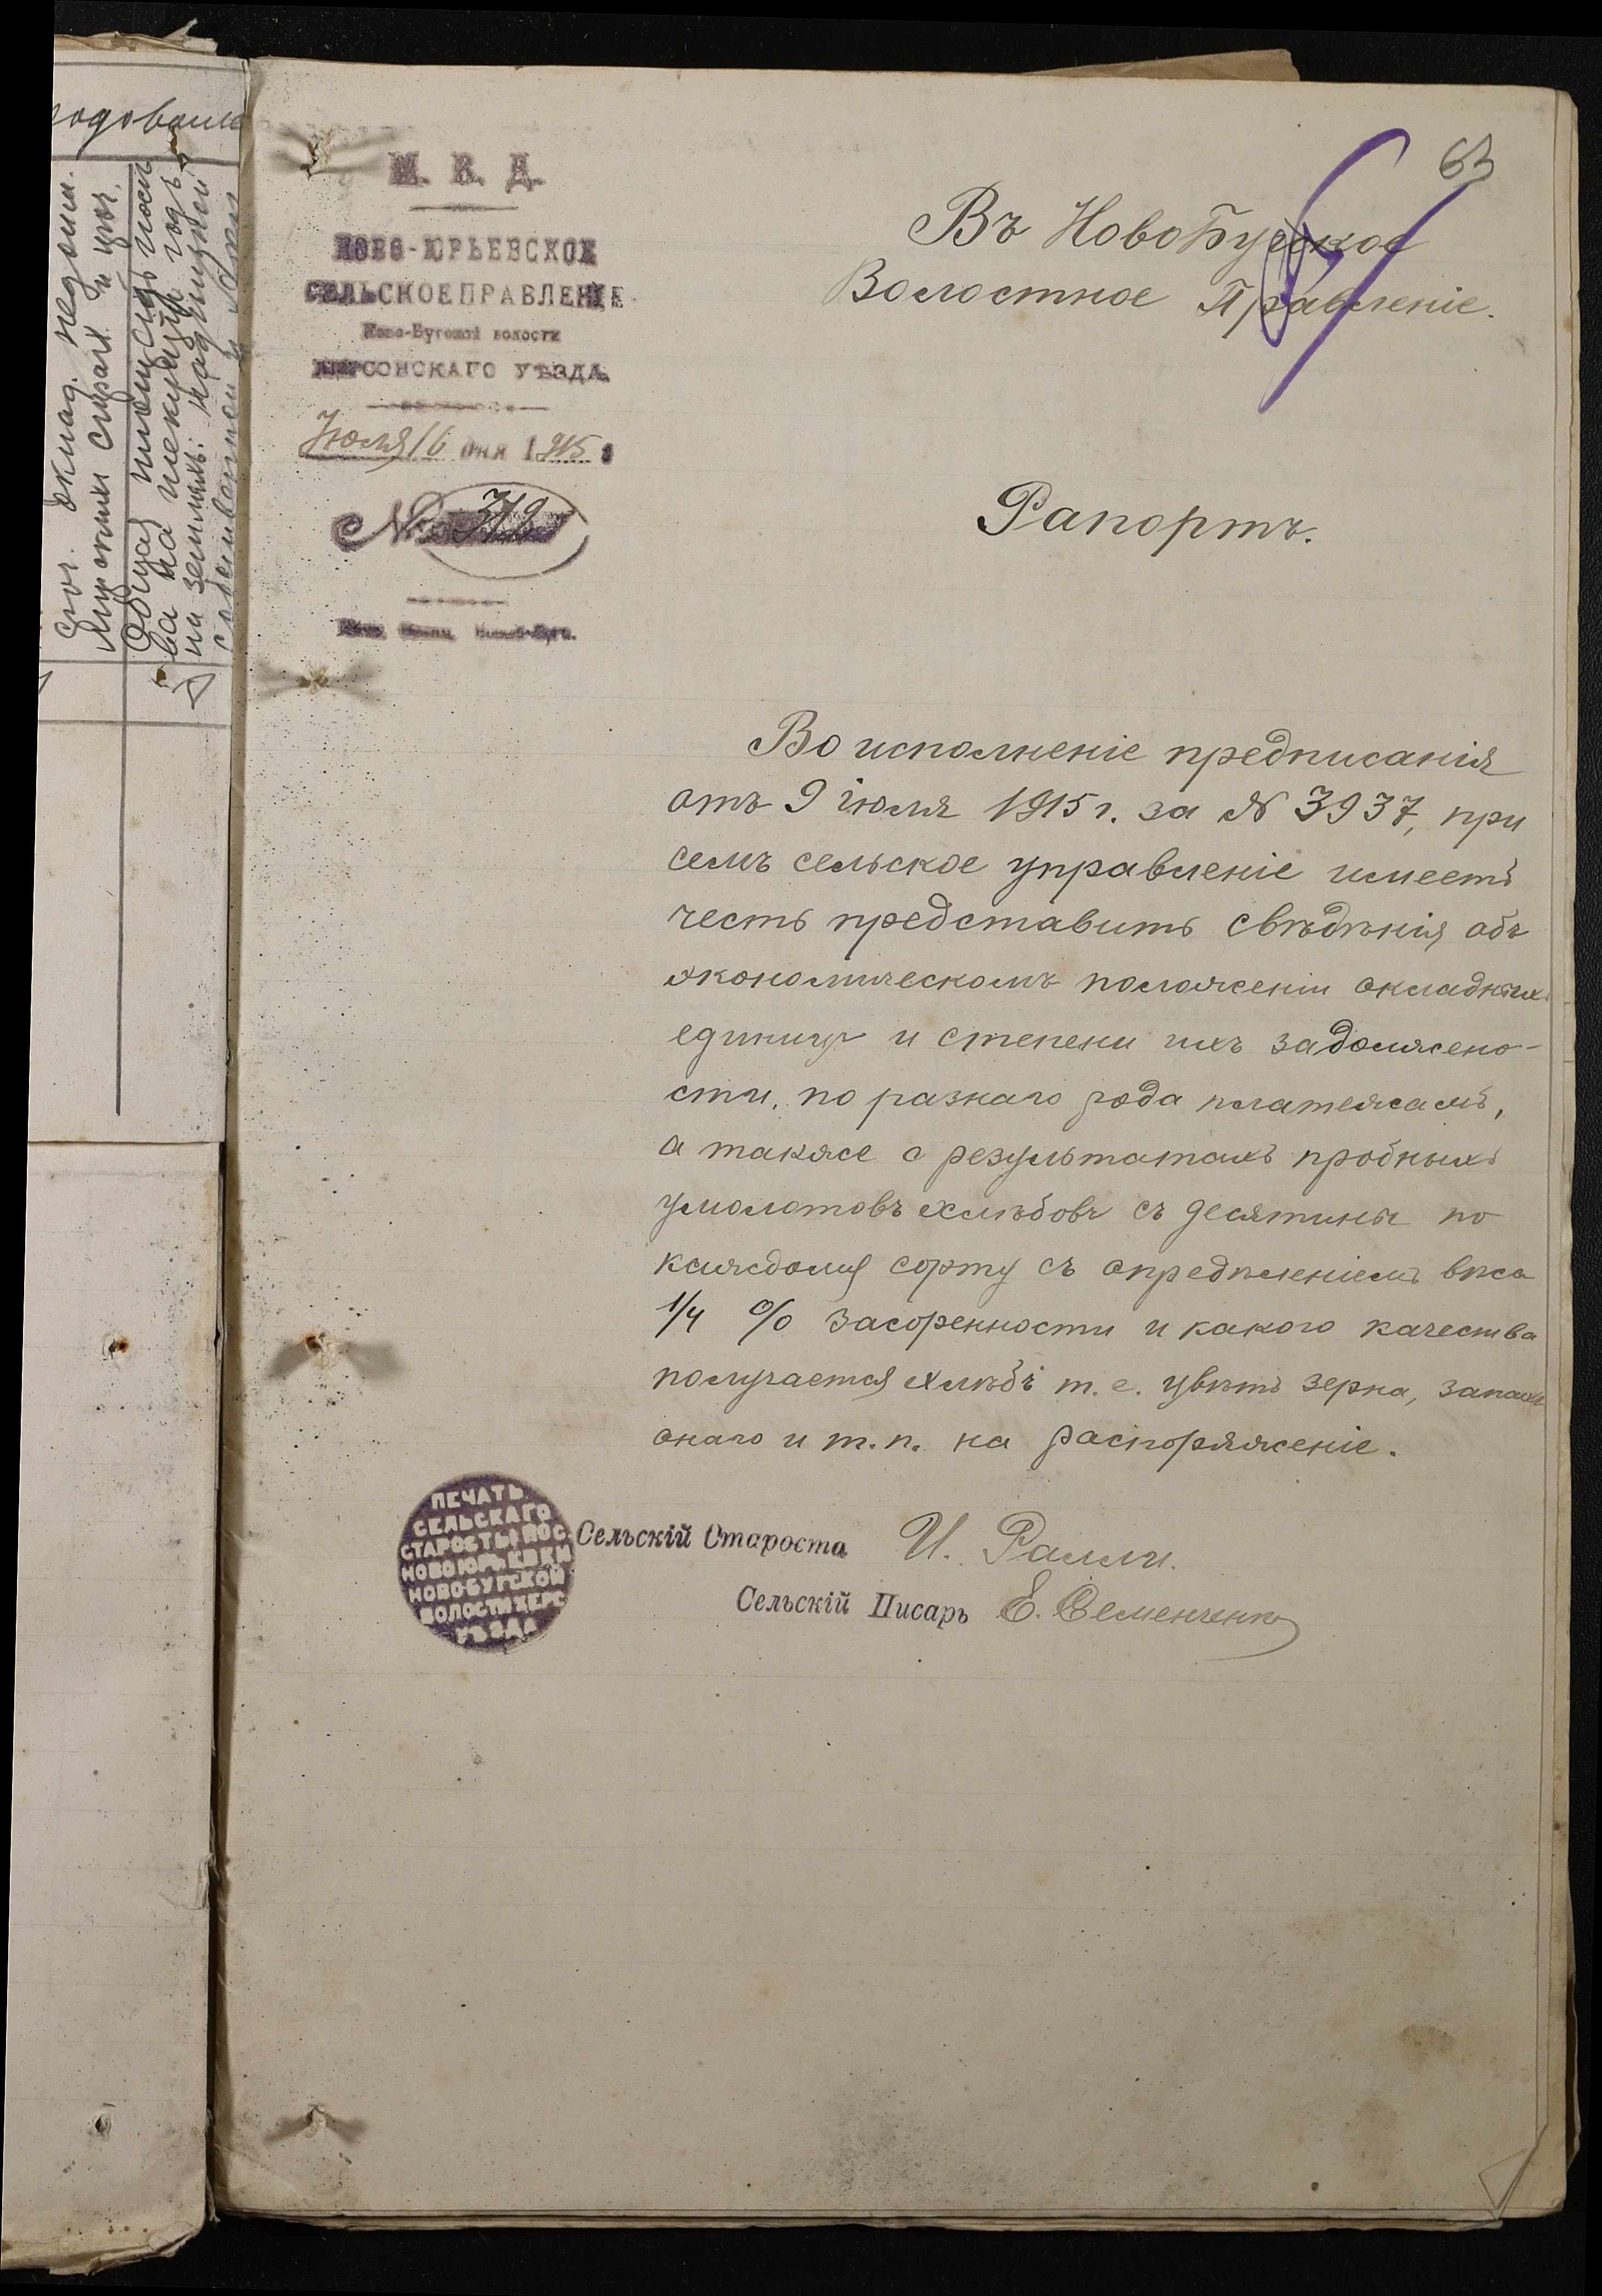 годован
сют. оклад. недоим.
мірскими страх. и проч.
Общая площадь посѣ
ва на текущій годъ
на земляхъ: надѣльной
собственной и аренд
63
М. В. Д.
НОВО-ЮРЬЕВСКОЕ
СЕЛЬСКОЕ ПРАВЛЕНІЕ
Ново-Бугской волости
ХЕРСОНСКАГО УѢЗДА.
Іюля 16 дня 1915 г
№ 312
Въ НовоБугское
Волостное Правленіе.
Рапортъ.
Во исполненіе предписанія
отъ 9 іюля 1915 г. за № 3937, при
семъ сельское управленіе имеетъ
честь представить свѣдѣнія объ
экономическомъ положеніи окладныхъ
единицъ и степени ихъ задолжено-
сти, по разнаго рода платежамъ,
а также о результатахъ пробныхъ
умолотовъ хлѣбовъ съ десятины по
каждому сорту съ опредѣленіемъ вѣса
1/4 % засоренности и какого качества
получается хлѣбъ т. е. цвѣтъ зерна, запахъ
онаго и т. п. на распоряженіе.
ПЕЧАТЬ
СЕЛЬСКАГО
СТАРОСТЫ ПОС
НОВОЮРЬЕВКИ
НОВОБУГСКОЙ
ВОЛОСТИ ХЕРС
УѢЗДА
Сельскій Староста И. Ралли.
Сельскій Писарь Е. Семенченко